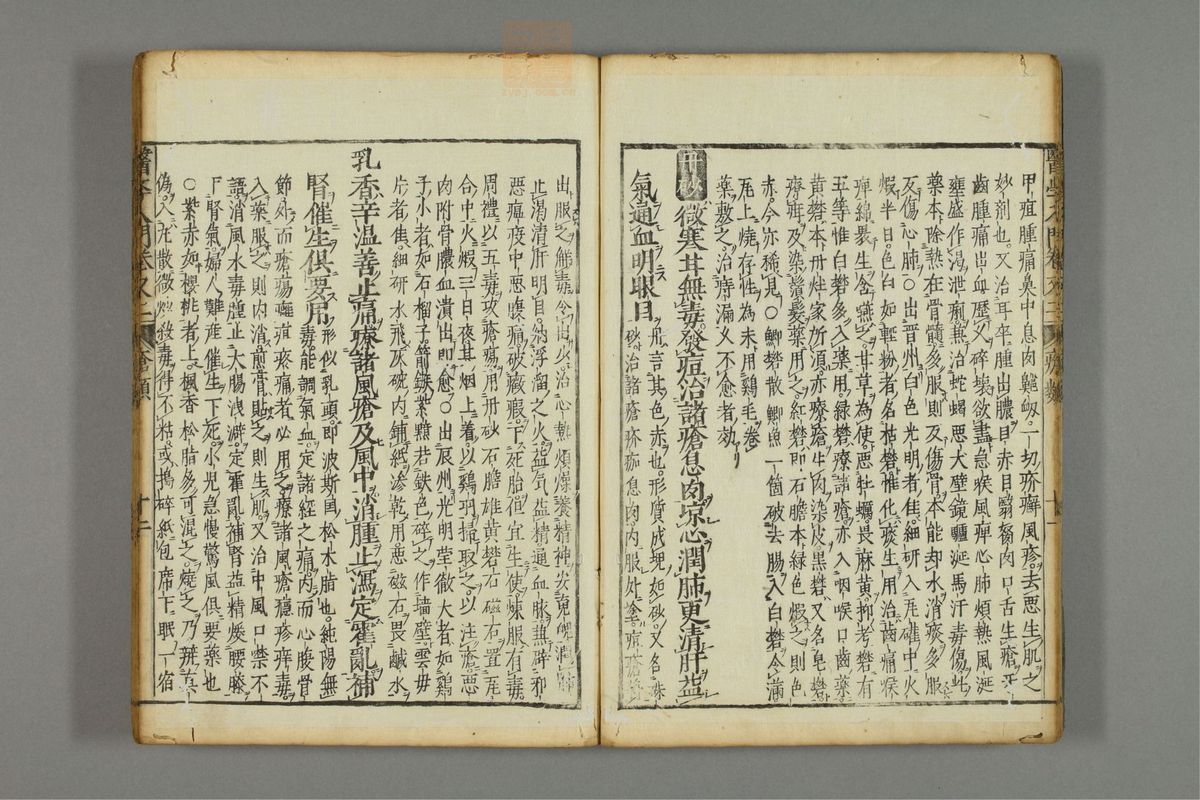 甲疽腫痛鼻中息肉難皰一切疥癬風疹去惡生肌之
妙劑也又治耳卒腫出膿目赤目翳胬肉口舌生瘡牙
齒腫痛出血歷久碎壞欲盡急喉風痺心肺煩熱風涎
壅盛作渴泄痢兼治蛇蝎惡犬壁鏡驢涎馬汗毒傷此
藥本除熱在骨髓多服則反傷骨本能却水消痰多服
反傷心肺○出晋州白色光明者佳細研入瓦礶中火
煆半日色白如輕粉者名枯礬惟化痰生用治齒痛喉
痺綿裹生含嚥甘草為使惡牡蠣畏麻黄抑考礬有
五等惟白礬多入藥用綠礬療諸瘡亦入咽喉口齒藥
黄礬本丹灶家所須亦療瘡生肉染皮黒礬又名皂礬
療疳及染鬚髮藥用之紅礬即石膽本綠色煆之則色
赤今亦稀見○鯽礬散鯽魚一箇破去腸入白礬令滿
瓦上燒存性為末用鷄毛卷
藥敷之治痔漏又不愈者効
丹砂微寒甘無毒發痘治諸瘡息肉凉心潤肺更清肝益
氣通血明眼目
丹言其色赤也形質成塊如砂又名硃
砂治諸瘡疥痂息肉内服外塗痘瘡
出服之觧毒令出少治心熱煩燥養精神安魂魄潤肺
止渴清肝明目納浮溜之火益氣益精通血脉兼辟邪
惡瘟疫中惡腹痛破癥瘕下死胎但宜生使煉服有毒
周禮以五毒攻瘡瘍用丹砂石膽雄黄礬石磁石置瓦
合中火煆三日夜其烟上着以鷄羽掃取之以注瘡惡
肉附骨膿血潰出即愈○出辰州光明瑩徹大者如鷄
子小者如石榴子箭鏃紫黯若鉄色碎之作墻壁雲毋
片者佳細研水飛灰碗内鋪紙滲乾用惡磁石畏鹹水
乳香辛温善止痛療諸風瘡及風中消腫止瀉定霍亂補
腎催生俱要用
形似乳頭即波斯国松木脂也純陽無
毒能調氣血定諸經之痛内而心腹骨
節外而瘡瘍癰疽疼痛者必用之療諸風瘡癮疹痒毒
入藥服之則内消煎膏貼之則生肌又治中風口噤不
語消風水毒腫止大腸洩澼定霍亂補腎益精煖腰膝
下腎氣婦人難産催生下死小児急慢驚風俱要藥也
○紫赤如櫻桃者上楓香松脂多可混之燒之乃辨真
偽入瓦散微炒殺毒得不粘或搗碎紙包席下眠一宿
醫學入門卷
瘡類
十二